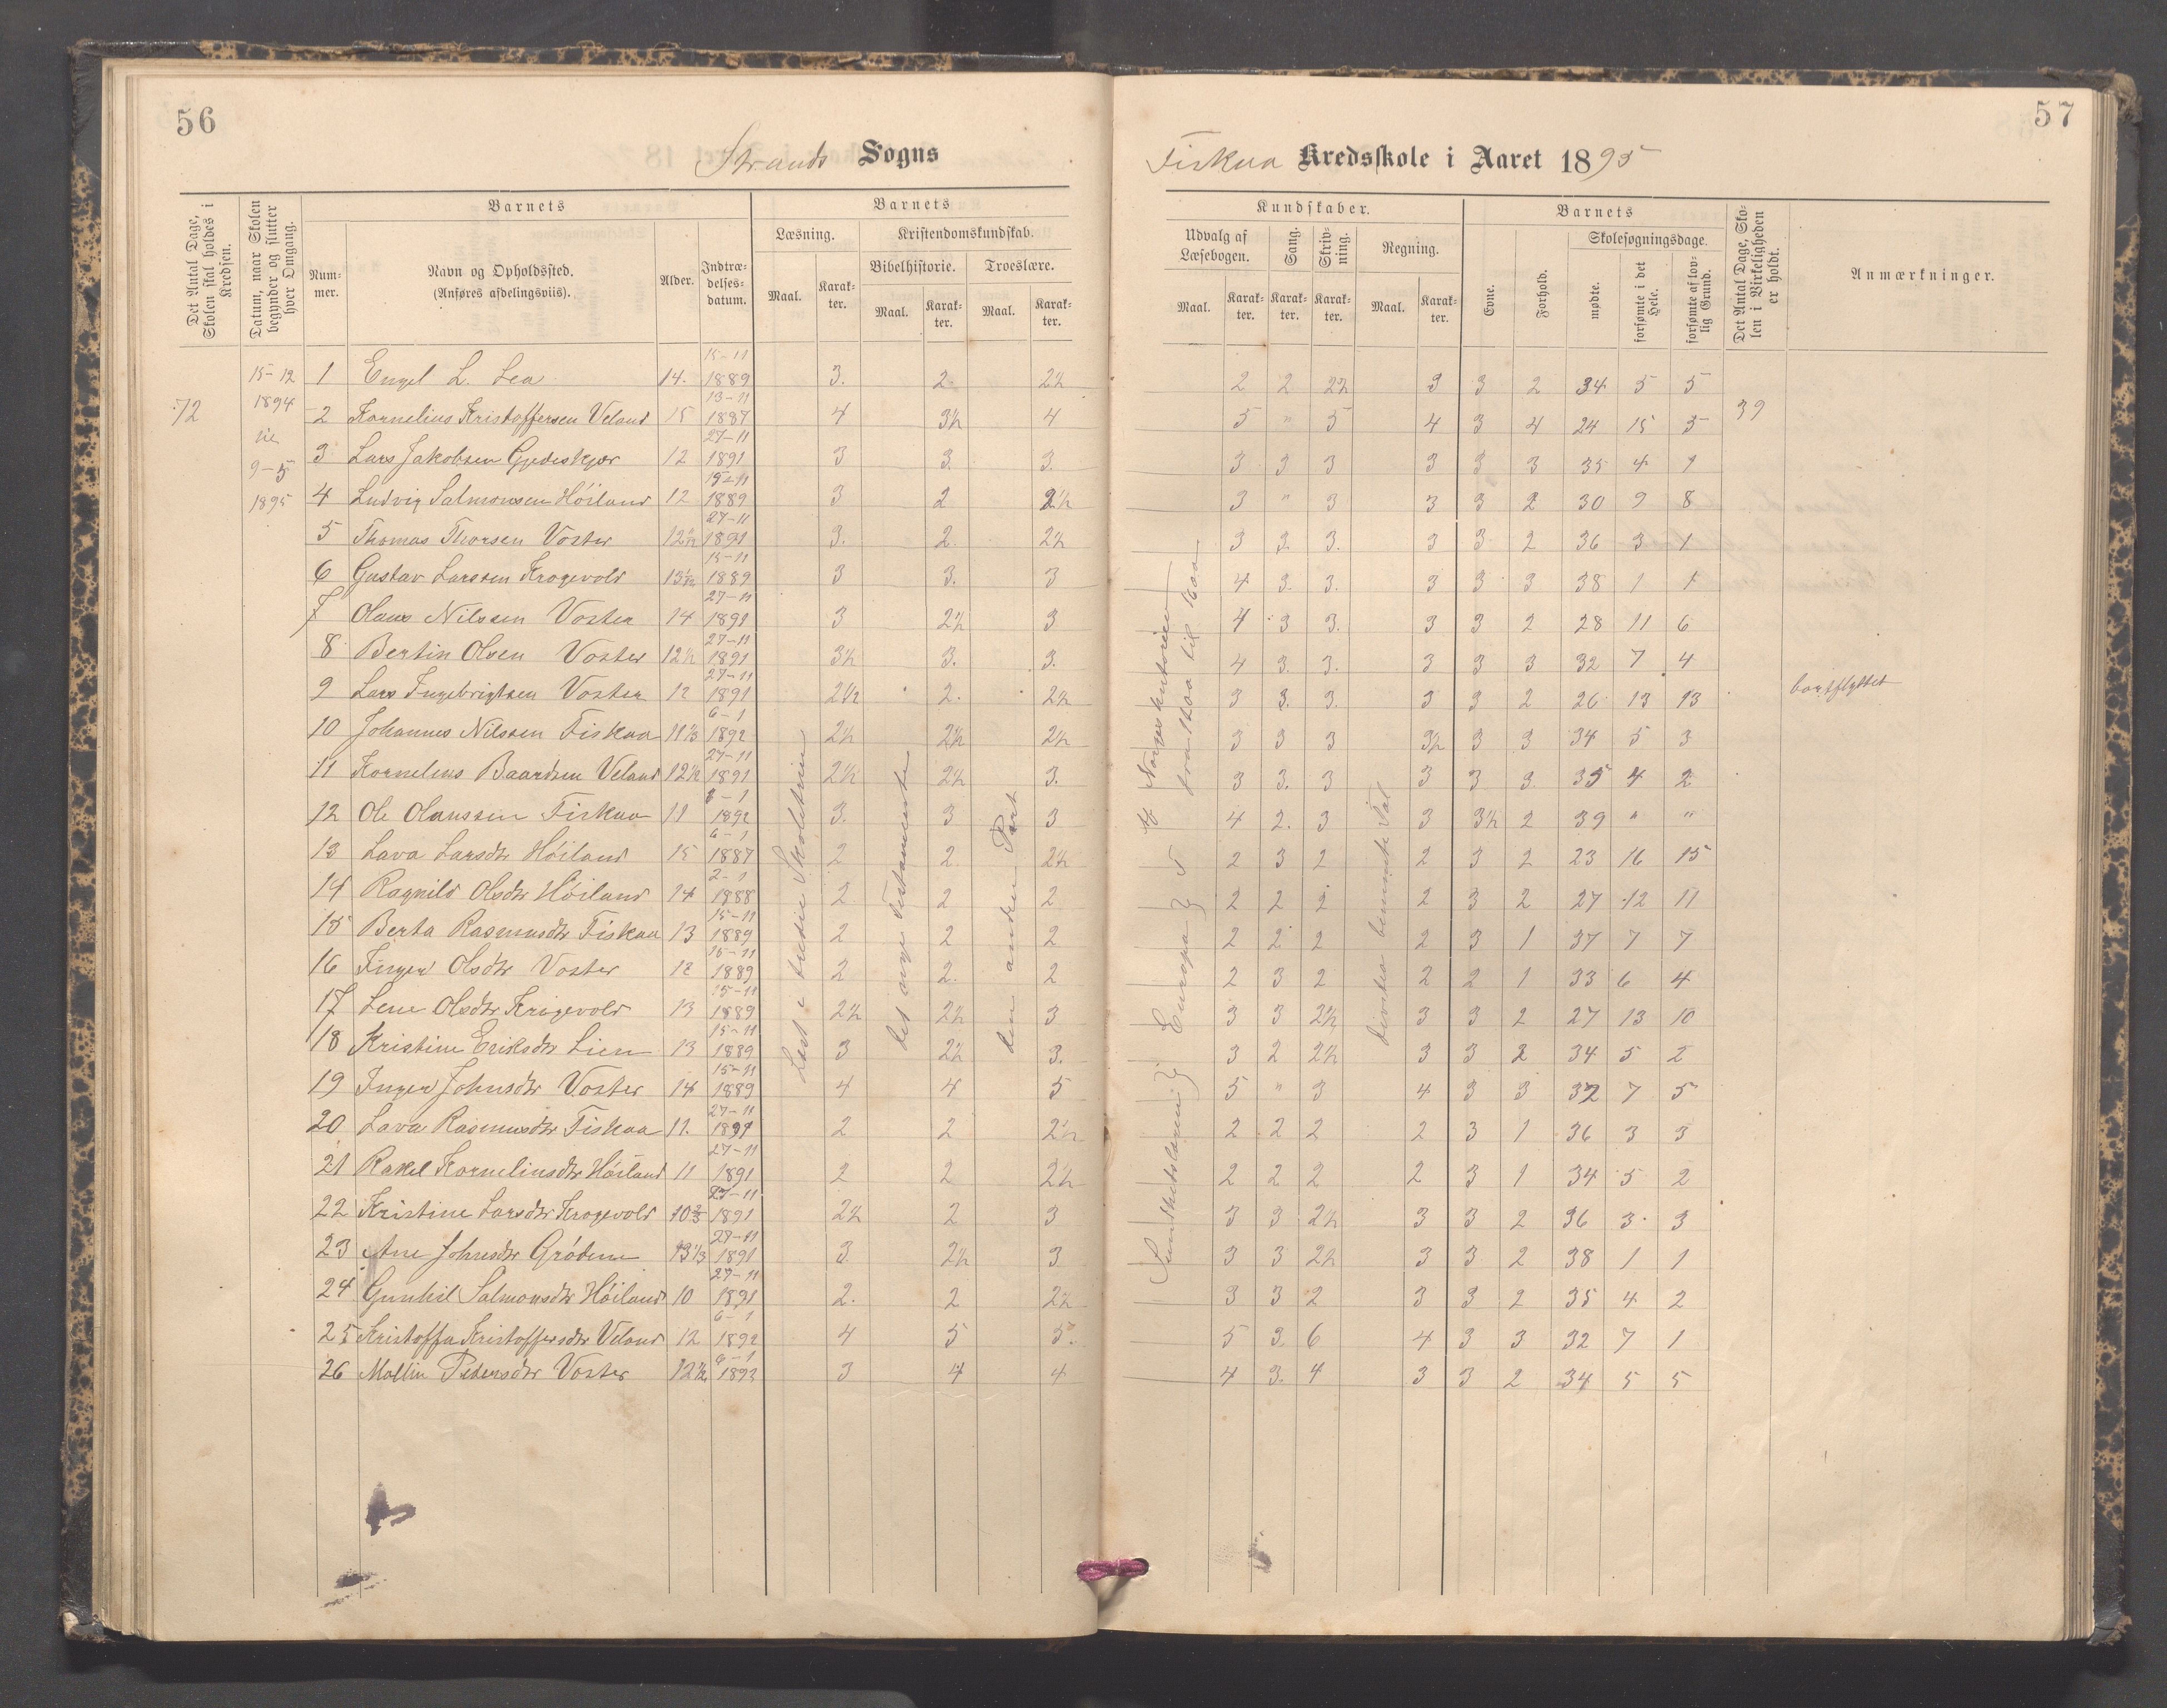 56
57
Strands Sogns
Fiskaa Kredsskole i Aaret 1895
Det Antal Dage, Skolen skal holdes i Kredsen.
Datum, naar Skolen begynder og slutter hver Omgang.
Barnets
Num-mer.
Navn og Opholdssted.
(Anføres afdelingsviis).
Alder.
Indtræ-delses-datum.
Barnets
Læsning.
Maal.
Karak-ter.
Kristendomskundskab.
Bibelhistorie.
Maal.
Karak-ter.
Troeslære.
Maal.
Karak-ter.
Kundskaber.
Udvalg af Læsebogen.
Maal.
Karak-ter.
Sang.
Karak-ter.
Skriv-ning.
Karak-ter.
Regning.
Maal.
Karak-ter.
Barnets
Evne.
Forhold.
Skolesøgningsdage.
mødte.
forsømte i det Hele.
forsømte af lov-lig Grund.
Det Antal Dage, Sko-len i Virkeligheden er holdt.
Anmærkninger.
72
15-12
1894
til
9-5
1895
39
1 Engel L. Lea 14. 15-11 1889 3. 2. 2½ 2 2 2½ 3 3 2 34 5 5
2 Kornelius Kristoffersen Veland 15 13-11 1887 4 3½ 4 5 " 5 4 3 4 24 15 5
3 Lars Jakobsen Gjedeskjær 12 27-11 1891 3 3. 3. 3 3 3 3 3 3 35 4 1
4 Ludvig Salmonsen Höiland 12 15-11 1889 3 2 2½ 3 " 3 3 3 2 30 9 8
5 Thomas Thorsen Voster 12½ 27-11 1891 3. 2. 2½ 3 3. 3. 3 3 2 36 3 1
6 Gustav Larssen Krogevold 13½ 15-11 1889 3 3. 3 4 3. 3. 3 3 3 38 1 1
7 Olaus Nilssen Voster 14 27-11 1891 3 2½ 3 4 3 3. 3 3 2 28 11 6
8 Bertin Olsen Voster 12½ 27-11 1891 3½ 3. 3. 4 3. 3. 3 3 3 32 7 4
9 Lars Ingebrigtsen Voster 12 27-11 1891 2½ 2. 2½ 3 3. 3. 3 3 2 26 13 13 bortflyttet
10 Johannes Nilssen Fiskaa 11⅓ 6-1 1892 2½ 2½ 2½ 3 3 3 3½ 3 3 34 5 3
11 Kornelius Baardsen Veland 12½ 27-11 1891 2½ 2½ 3. 3 3. 3 3 3 3. 35 4 2
12 Ole Olaussen Fiskaa 11 6-1 1892 3. 3 3 4 2. 3 3 3½ 2 39 " "
13 Lava Larsdtr Höiland 15 6-1 1887 2 2. 2½ 2 3 2 2 3 2 23 16 15
14 Ragnild Olsdtr Höiland 14 2-1 1888 2 2 2 2 2 2 2 3 2 27 12 11
15 Berta Rasmusdtr Fiskaa 13 15-11 1889 2 2 2 2 2 2 2 3 1 37 7 7
16 Inger Olsdtr Voster 12 15-11 1889 2 2. 2 2 3 2 2 2 1 33 6 4
17 Lene Olsdtr Krogevold 13 15-11 1889 2½ 2½ 3 3 3 2½ 3 3 2 27 13 10
18 Kristine Eriksdtr Lien 13 15-11 1889 3 2½ 3. 3 2 2½ 3 3 2 34 5 2
19 Inger Johnsdtr Voster 14 15-11 1889 4 4 5 5 " 3 4 3 3 32 7 5
20 Lava Rasmusdtr Fiskaa 11. 27-11 1891 2 2 2½ 2 2 2 2 3 1 36 3 3
21 Rakel Korneliusdtr Höiland 11 27-11 1891 2 2 2½ 2 2 2 2 3 1 34 5 2
22 Kristine Larsdtr Krogevold 10⅔ 27-11 1891 2½ 2 3 3 3 2½ 3 3 2 36 3 3
23 Ane Johnsdtr Grödem 13⅓ 27-11 1891 3. 2½ 3 3 3 2½ 3 3 2 38 1 1
24 Gunhil Salmonsdtr Höiland 10 27-11 1891 2. 2 2½ 3 3 2 3 3 2 35 4 2
25 Kristoffa Kristoffersdtr Veland 12 6-1 1892 4 5 5. 5 3 6 4 3 3 32 7 1
26 Mallin Pedersdtr Voster 12½ 6-1 1893 3 4 4 4 3. 4 3 3 2 34 5 5
Læst i tredie Skoletrin
det nye Testamente
den anden Part
Sundhedslæren
Europa
af Norgeshistorien
fra 1200 til 1600
benevnte Tal